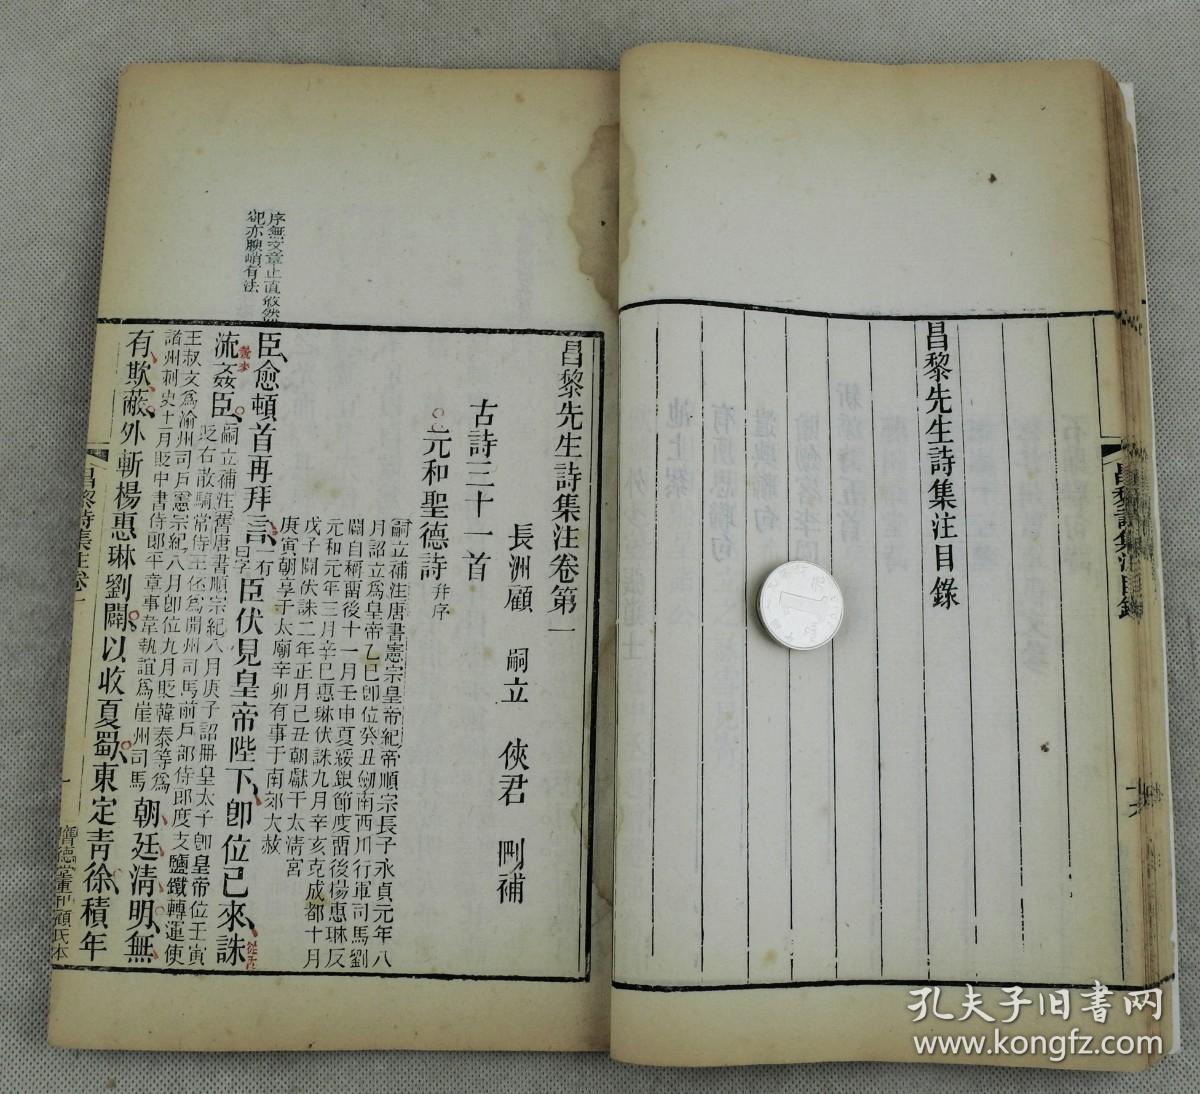 昌黎先生詩集注目錄
昌黎詩集注目錄
昌黎先生詩集注卷第一
長洲顧 嗣立 俠君 刪補
古詩三十一首
元和聖德詩并序
嗣立補注唐書憲宗皇帝紀帝順宗長子永貞元年八
月詔立為皇帝乙巳卽位癸丑劒南西川行軍司馬劉
闢自稱畱後十一月壬申夏綏銀節度畱後楊惠琳反
元和元年三月辛巳惠琳伏誅九月辛亥克成都十月
戊子闢伏誅二年正月己丑朝獻于太清宮
庚寅朝享于太廟辛卯有事于南郊大赦
序無文章止直敘然
臣愈頓首再拜言一有曰字臣伏見皇帝陛下卽位已來誅
流姦臣嗣立補注舊唐書順宗紀八月庚子詔冊皇太子卽皇帝位壬寅
貶右散騎常侍王伾為開州司馬前戶部侍郎度支鹽鐵轉運使
王叔文為渝州司戶憲宗紀八月卽位九月貶韓泰等為
諸州刺史十月貶中書侍郎平章事韋執誼為崖州司馬朝廷清明無
有欺蔽外斬楊惠琳劉闢以收夏蜀東定青徐積年
昌黎詩集注卷一
一
膺德堂重刊顧氏本
孔夫子旧书网
www.kongfz.com